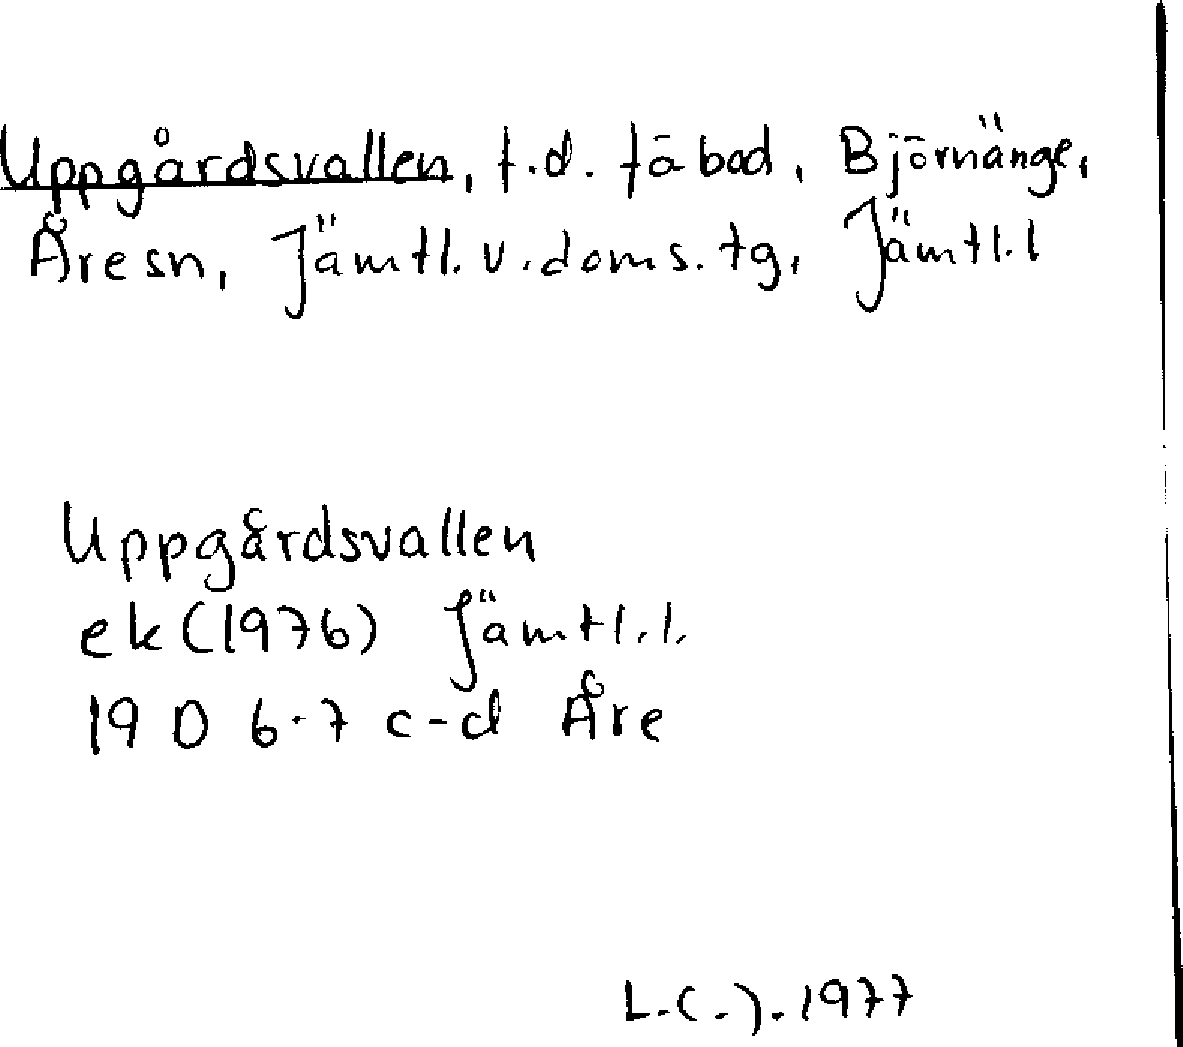 Uppgårdsvallen, f.d. fäbod, Björnänge,
Åre sn, Jämtl. v. doms. tg, Jämtl. l
Uppgårdsvallen
ek (1976) Jämtl. l.
19 D 6-7 c-d Åre
1977